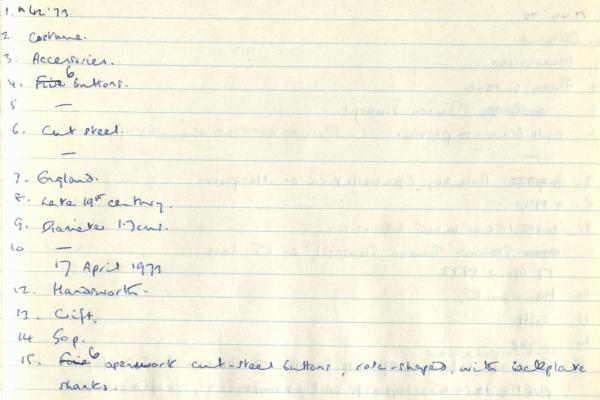 1. M 42 '73
2. Costume.
3. Accessories.
4. Five 6 buttons.
5 —
6. Cut steel.
—
7. England.
8. Late 19th century.
9. Diameter 1.7 cms.
10 —
17 April 1973
12. Handsworth.
13. Gift.
14 50p.
15. Five 6 openwork cut-steel buttons, rose-shaped, with backplate
shanks.